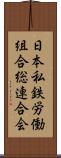 日本私鉄労働
組合総連合会